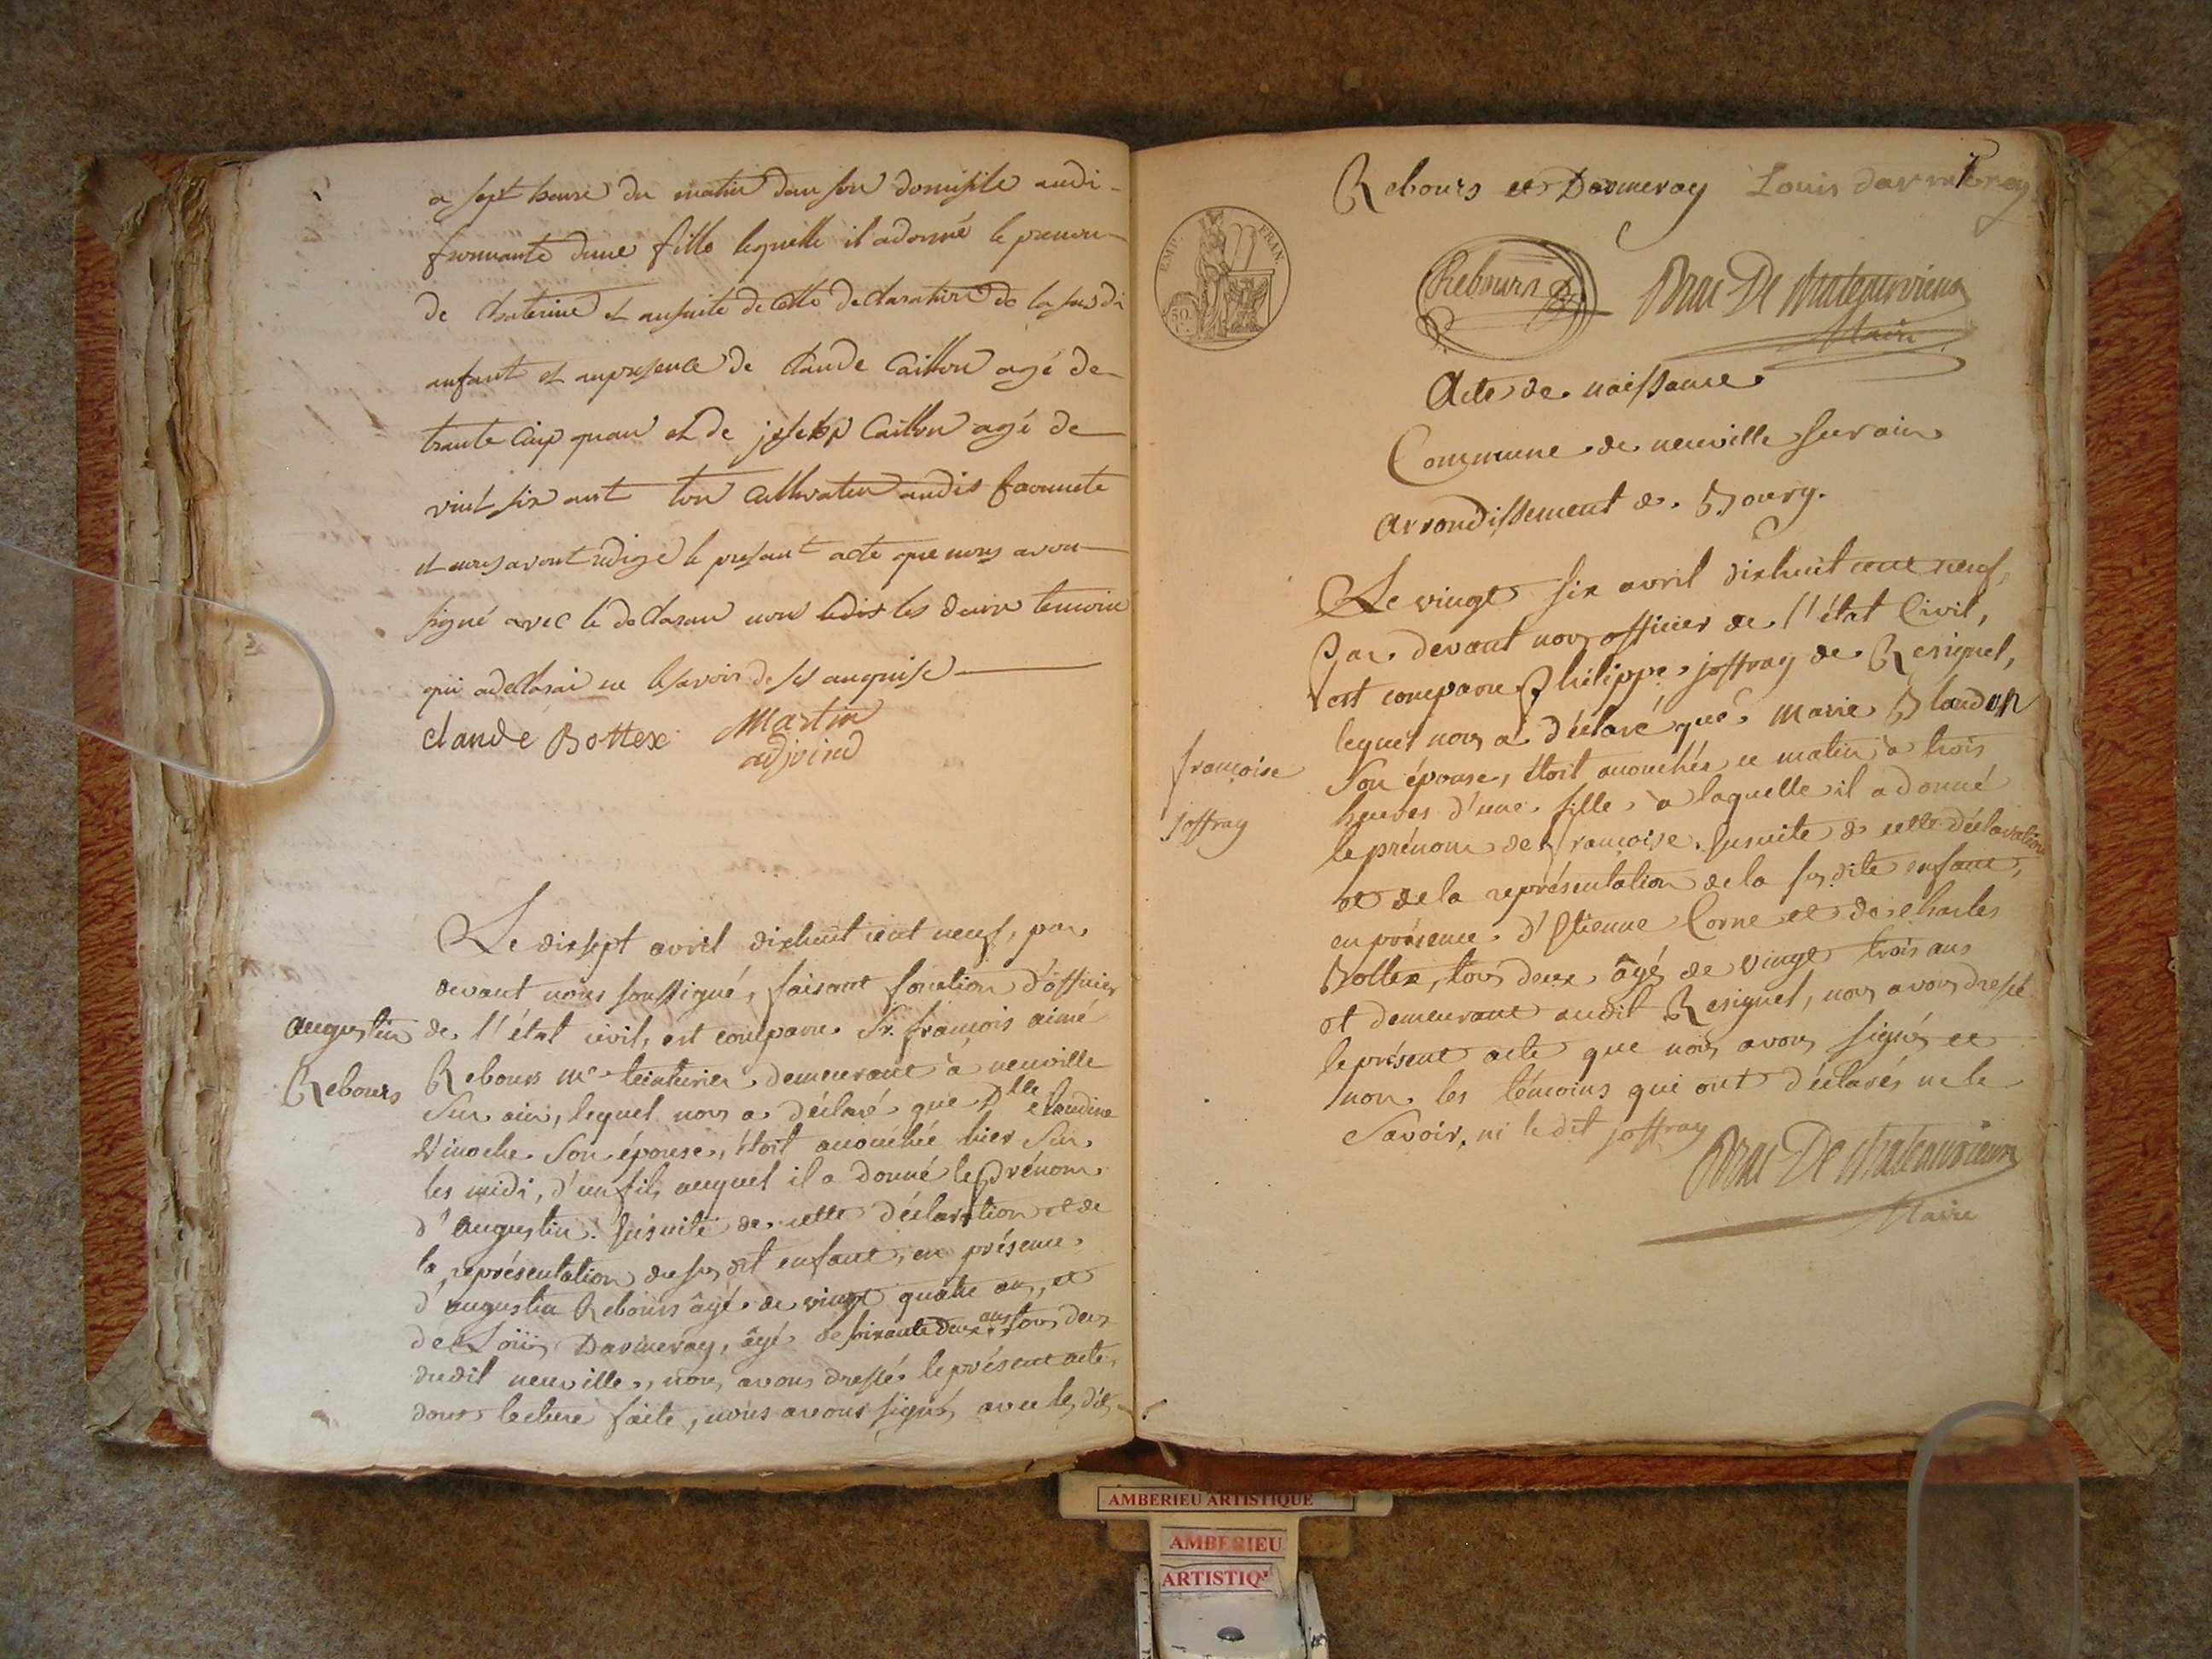 a sept heure du matin dans son domisile audi-
fromante d'une fille lequelle il a donné le prenon
de Chaterine et ansuite de cette declaration de la susdi
anfant et anpresence de Claude Caillon agé de
trante cinp quan et de joseph Caillon agé de
vint six ant tou cultivateu audis fromente
et nous avont redigé le presant acte que nous avon
signé avec le declaran non ledis les deux temoin
qui a declarai ne le savoir de ses anquise
claude Bottex Martin
adjoind
Le dix sept avril dixhuit cent neuf, par
devant nous soussigné, faisant fonction d'officier
augustin
Rebours
de l'état civil, est comparu Sr. françois aimé
Rebours Me teinturier demeurant à neuville
Sur ain, lequel nous a déclaré que Dlle claudine
son épouse, étoit accouchée hier Sur
les midi, d'un fils auquel il a donné le Prénom
d'augustin. Ensuite de cette déclaration et de
la représentation du sus dit enfant, en présence
d'augustin Rebours âgé de vingt quatre ans, et
de Loüis Darmeray, âgé de soixante deux ans, tous deux
dudit neuville, nous avons dressé le présent acte,
dont lecture faite, nous avons signés avec les dits
Rebours et Darmeray Louis darmeray
EMP. FRAN.
50 C.
Rebours Brac De
Maire
Acte de naissance
Commune de neuville sur ain
arrondissement de Bourg.
Le vingt six avril dixhuit cent neuf,
Par devant nous officier de l'état Civil,
est comparu Philippe joffray de Resignel,
lequel nous a déclaré que marie Blandon
françoise
joffray
Son épouse, étoit accouchée ce matin à trois
heures d'une fille, a laquelle il a donné
le prénom de françoise. Ensuite de cette déclaration
et de la représentation de la sus dite enfant,
en présence d'Etienne Corne et de charles
Bottex, tous deux âgés de vingt trois ans
et demeurant audit Resignel, nous avons dressé
le présent acte que nous avons signés et
non les témoins qui ont déclarés ne le
Savoir, ni le dit joffray
Brac De
Maire
AMBERIEU ARTISTIQUE
AMBERIEU
ARTISTIQ